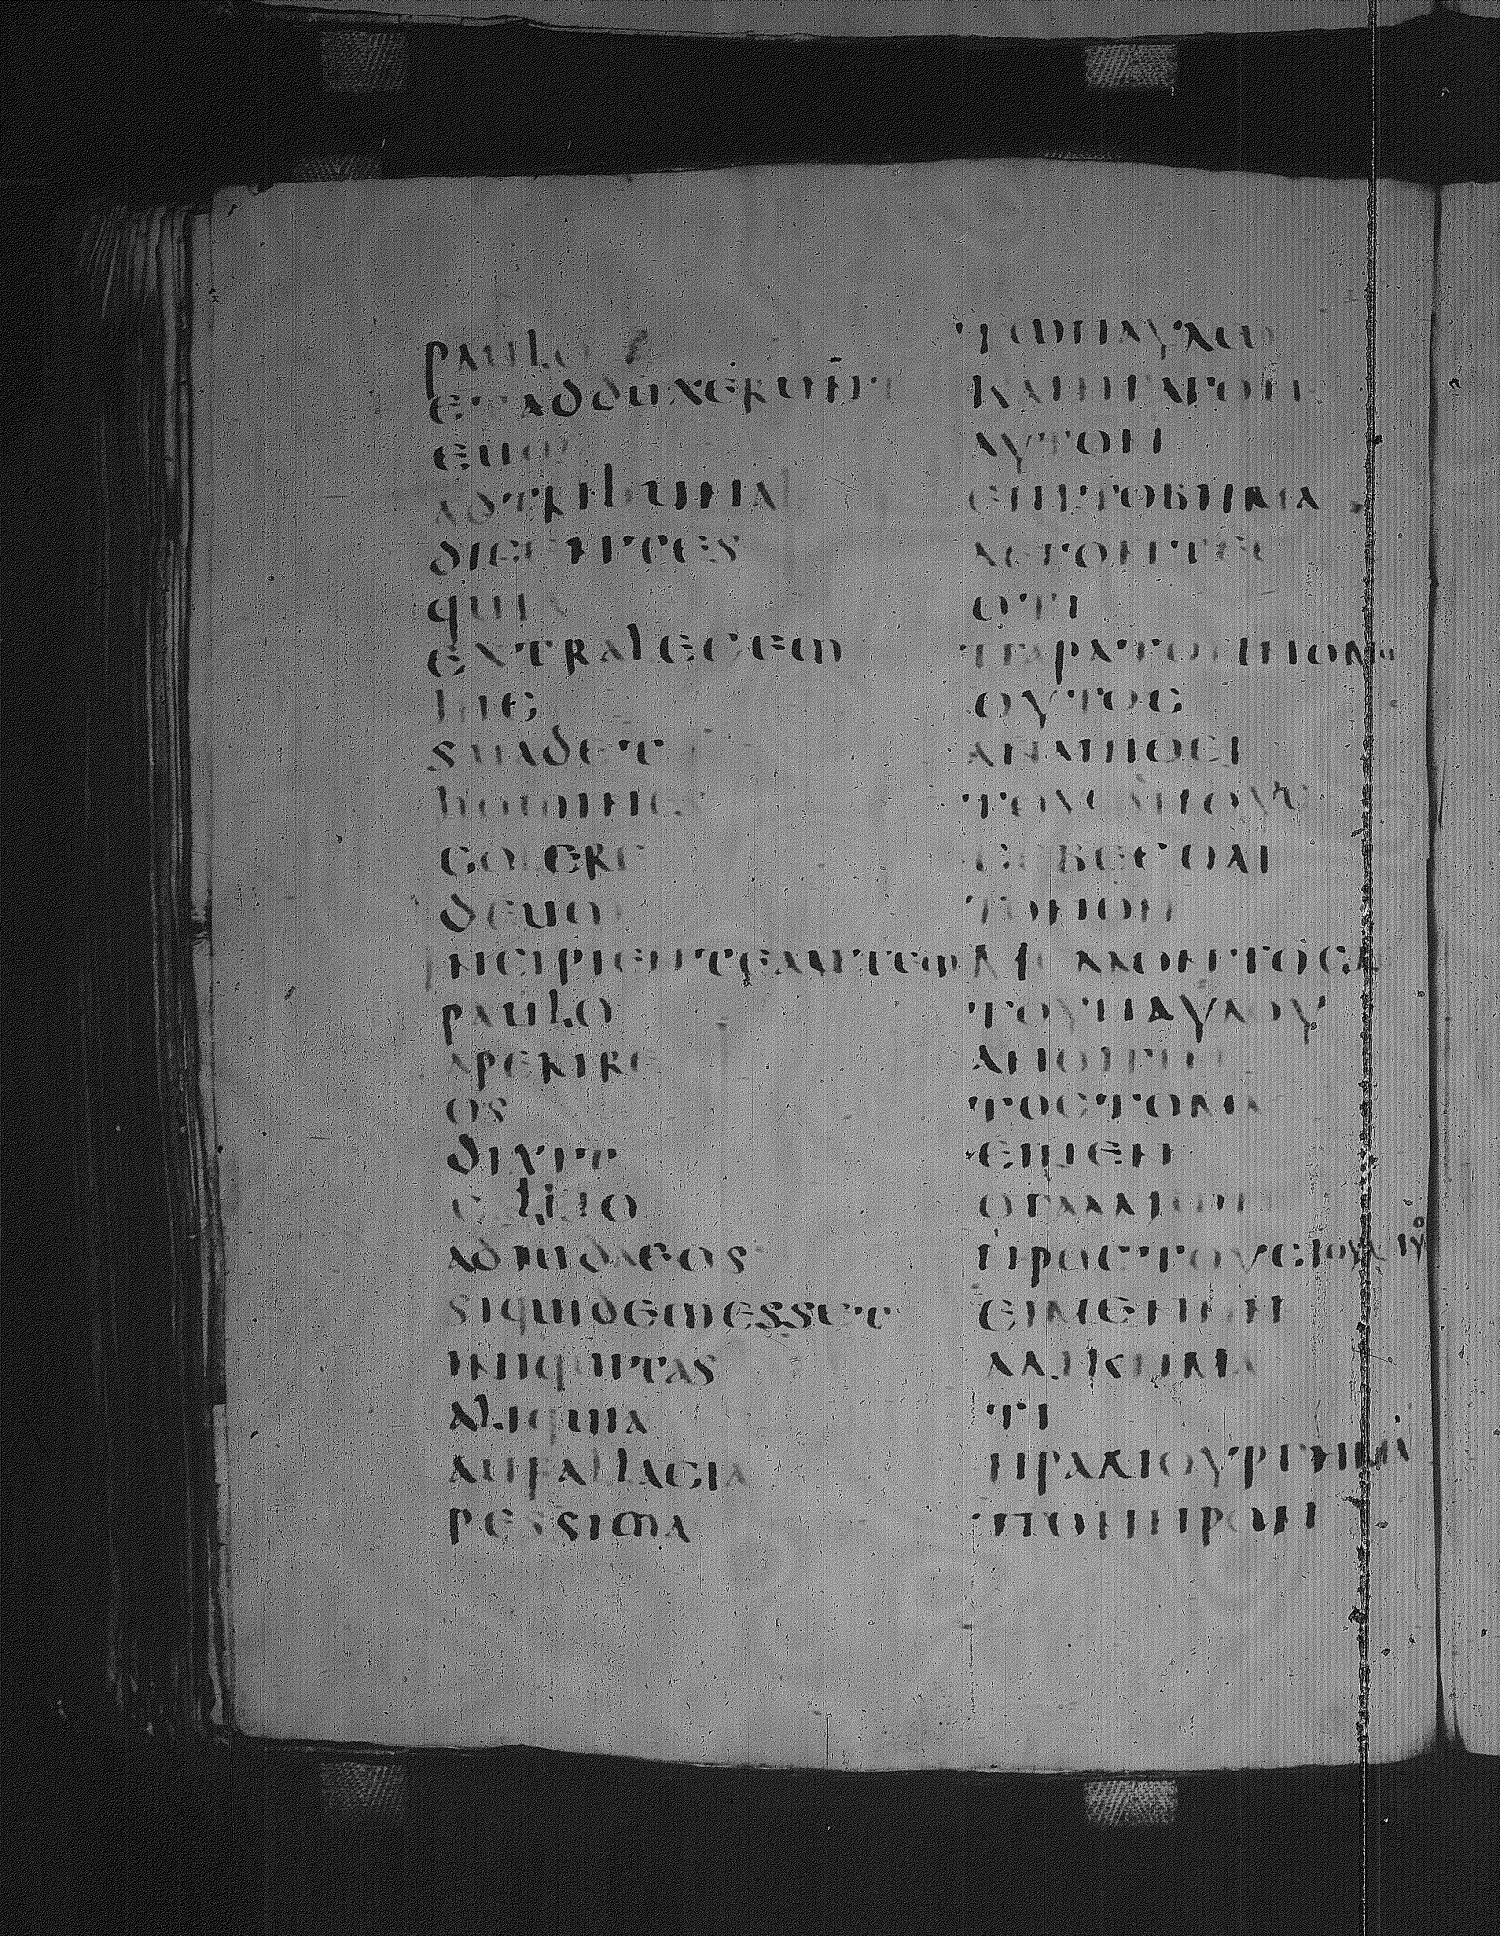 paulo
etadduxerunt
eum
adtribunal
dicentes
quia
extralegem
hic
suadet
homines
colere
deum
incipienteautem
paulo
aperire
os
dixit
gallio
adiudaeos
siquidemesset
iniquitas
aliqua
autfallacia
pessima
ΤΩΠΑΥΛΩ
ΚΑΙΗΓΑΓΟΝ
ΑΥΤΟΝ
ΕΠΙΤΟΒΗΜΑ
ΛΕΓΟΝΤΕϹ
ΟΤΙ
ΠΑΡΑΤΟΝΝΟΜΟΝ
ΟΥΤΟϹ
ΑΝΑΠΙΘΕΙ
ΤΟΥϹΑΝΟΥϹ
ϹΕΒΕϹΘΑΙ
ΤΟΝΘΟΝ
ΜΕΛΛΟΝΤΟϹΔΕ
ΤΟΥΠΑΥΛΟΥ
ΑΝΟΙΓΙΝ
ΤΟϹΤΟΜΑ
ΕΙΠΕΝ
ΟΓΑΛΛΙΩΝ
ΠΡΟϹΤΟΥϹΙΟΥΔΑΙΟΥϹ
ΕΙΜΕΝΗΝ
ΑΔΙΚΗΜΑ
ΤΙ
ΗΡΑΔΙΟΥΡΓΗΜΑ
ΠΟΝΗΡΟΝ